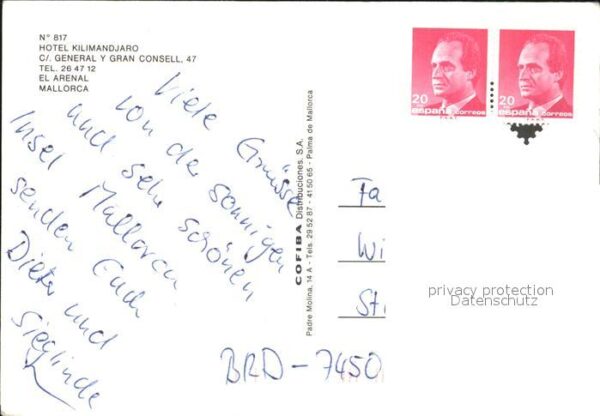 Nº 817
HOTEL KILIMANDJARO
C/. GENERAL Y GRAN CONSELL, 47
TEL. 26 47 12
EL ARENAL
MALLORCA
Viele Grüsse
von der sonnigen
und sehr schönen
Insel Mallorca
senden Euch
Dieter und
Sieglinde
COFIBA Distribuciones, S.A.
Padre Molina, 14 A - Tels. 29 52 87 - 41 50 65 - Palma de Mallorca
20
españa correos
20
españa correos
Fa
Wi
St
BRD - 7450
privacy protection
Datenschutz